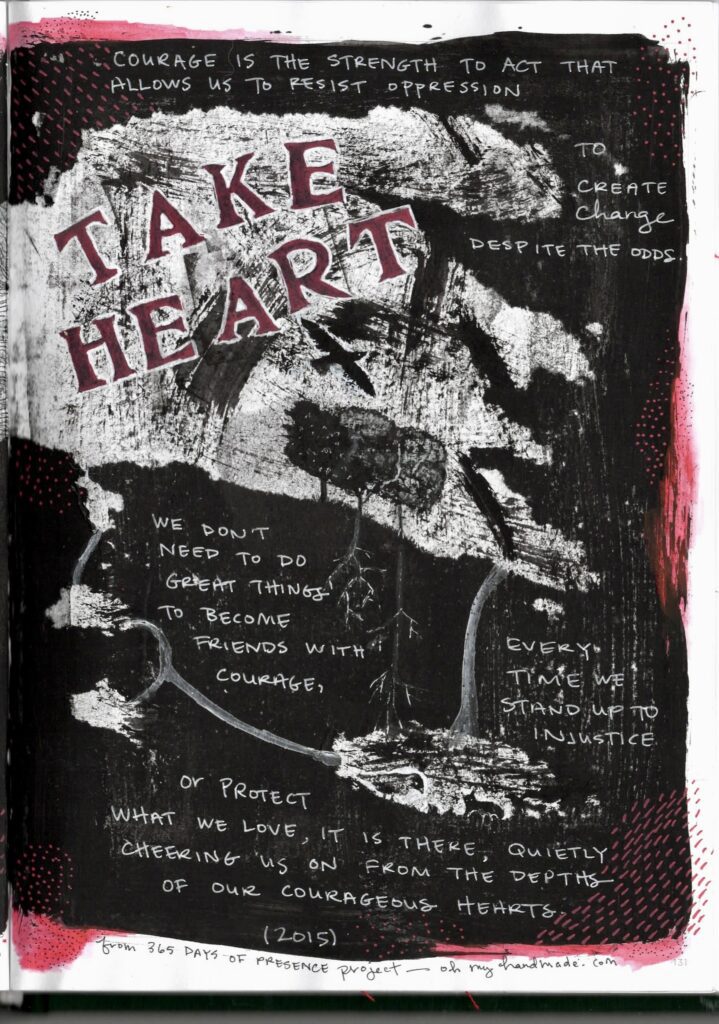 COURAGE IS THE STRENGTH TO ACT THAT
ALLOWS US TO RESIST OPPRESSION
TO
CREATE
Change
DESPITE THE ODDS.
TAKE
HEART
WE DON'T
NEED TO DO
GREAT THINGS
TO BECOME
FRIENDS WITH
COURAGE,
EVERY
TIME WE
STAND UP TO
INJUSTICE
Or PROTECT
WHAT WE LOVE, IT IS THERE, QUIETLY
CHEERING US ON FROM THE DEPTHS
OF OUR COURAGEOUS HEARTS.
(2015)
from 365 DAYS OF PRESENCE project — oh my handmade.com
131